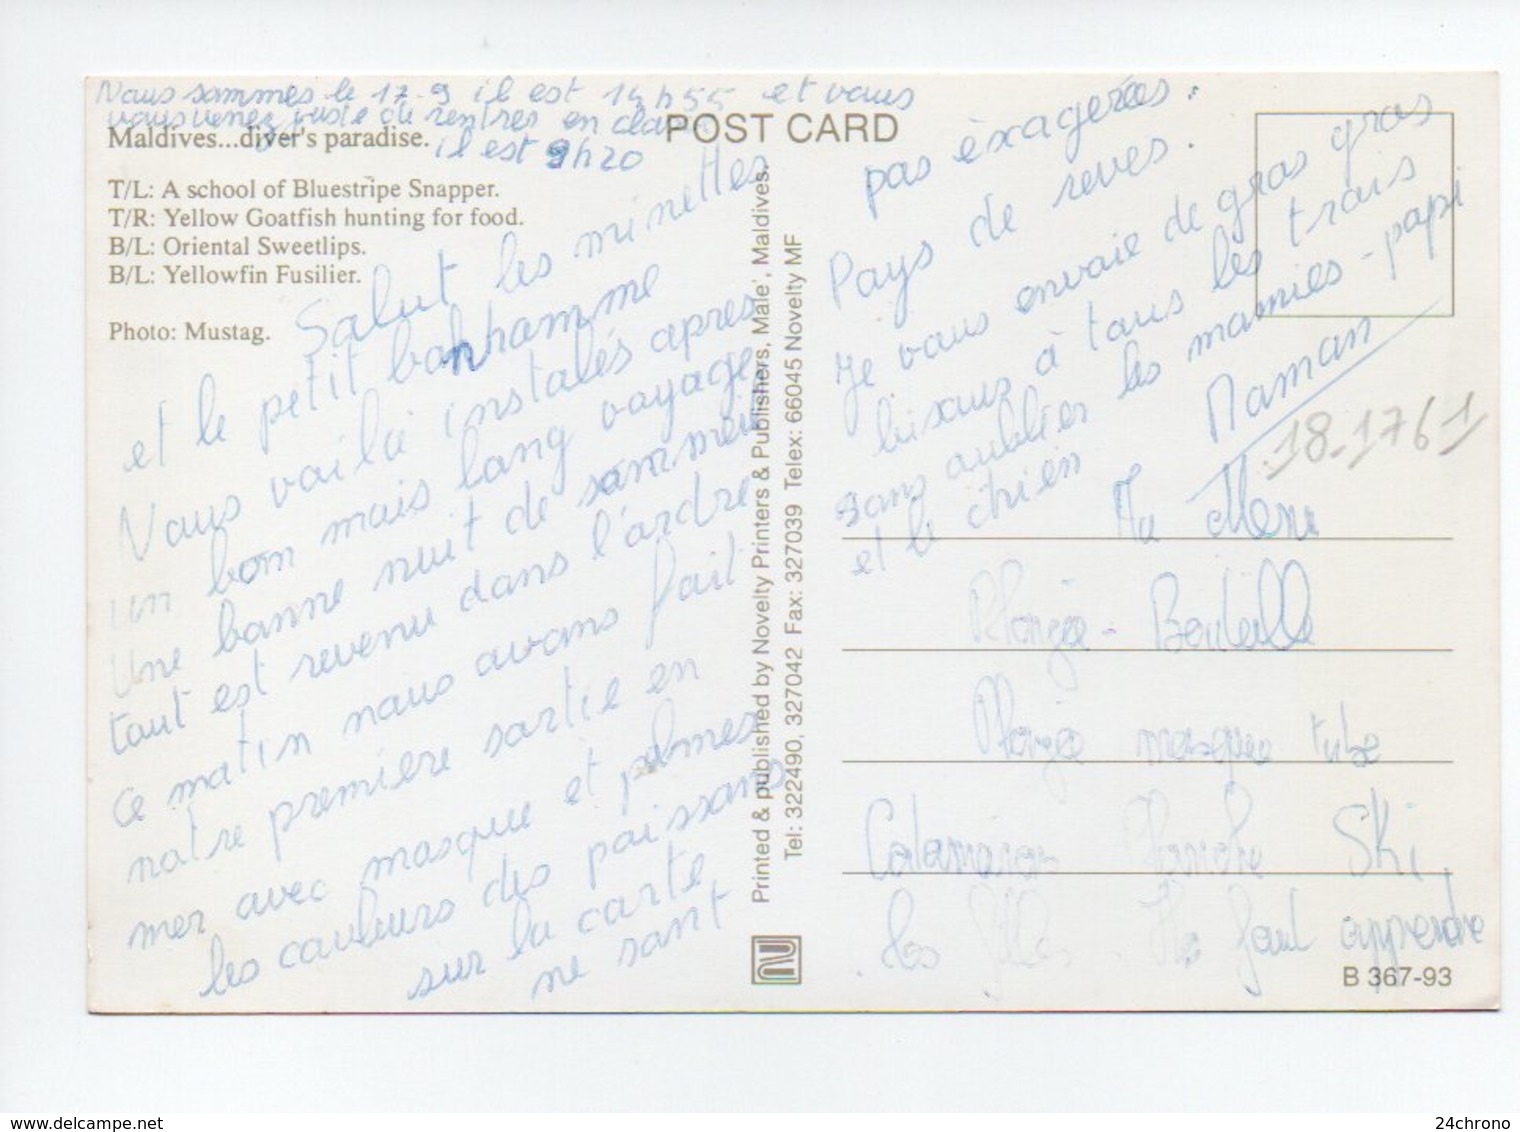 Nous sommes le 17-9 il est 14h55 et vous
vous venez juste de rentres en
il est 9h20
Maldives...diver's paradise.
T/L: A school of Bluestripe Snapper.
T/R: Yellow Goatfish hunting for food.
B/L: Oriental Sweetlips.
B/L: Yellowfin Fusilier.
Photo: Mustag.
Salut les minettes
et le petit bonhomme
Nous voilà instalés apres
un bon mais long voyage
Une bonne nuit de sommeil
tout est revenu dans l'ordre
Ce matin nous avons fait
notre premiere sortie en
mer avec masque et palmes
les couleurs des poissons
sur la carte
ne sont
POST CARD
Printed & published by Novelty Printers & Publishers, Male', Maldives.
Tel: 322490, 327042 Fax: 327039 Telex: 66045 Novelty MF
pas exagerées.
Pays de reves.
Je vous envoie de gros gros
bisous à tous les trois
sans oublier les mamies - papi
et le chien
Maman
18-1761
Au Menu
Plongée - Bouteille
Plongée masque tube
Catamaran Planche Ski
les filles faut apprendre
B 367-93
24chrono
www.delcampe.net